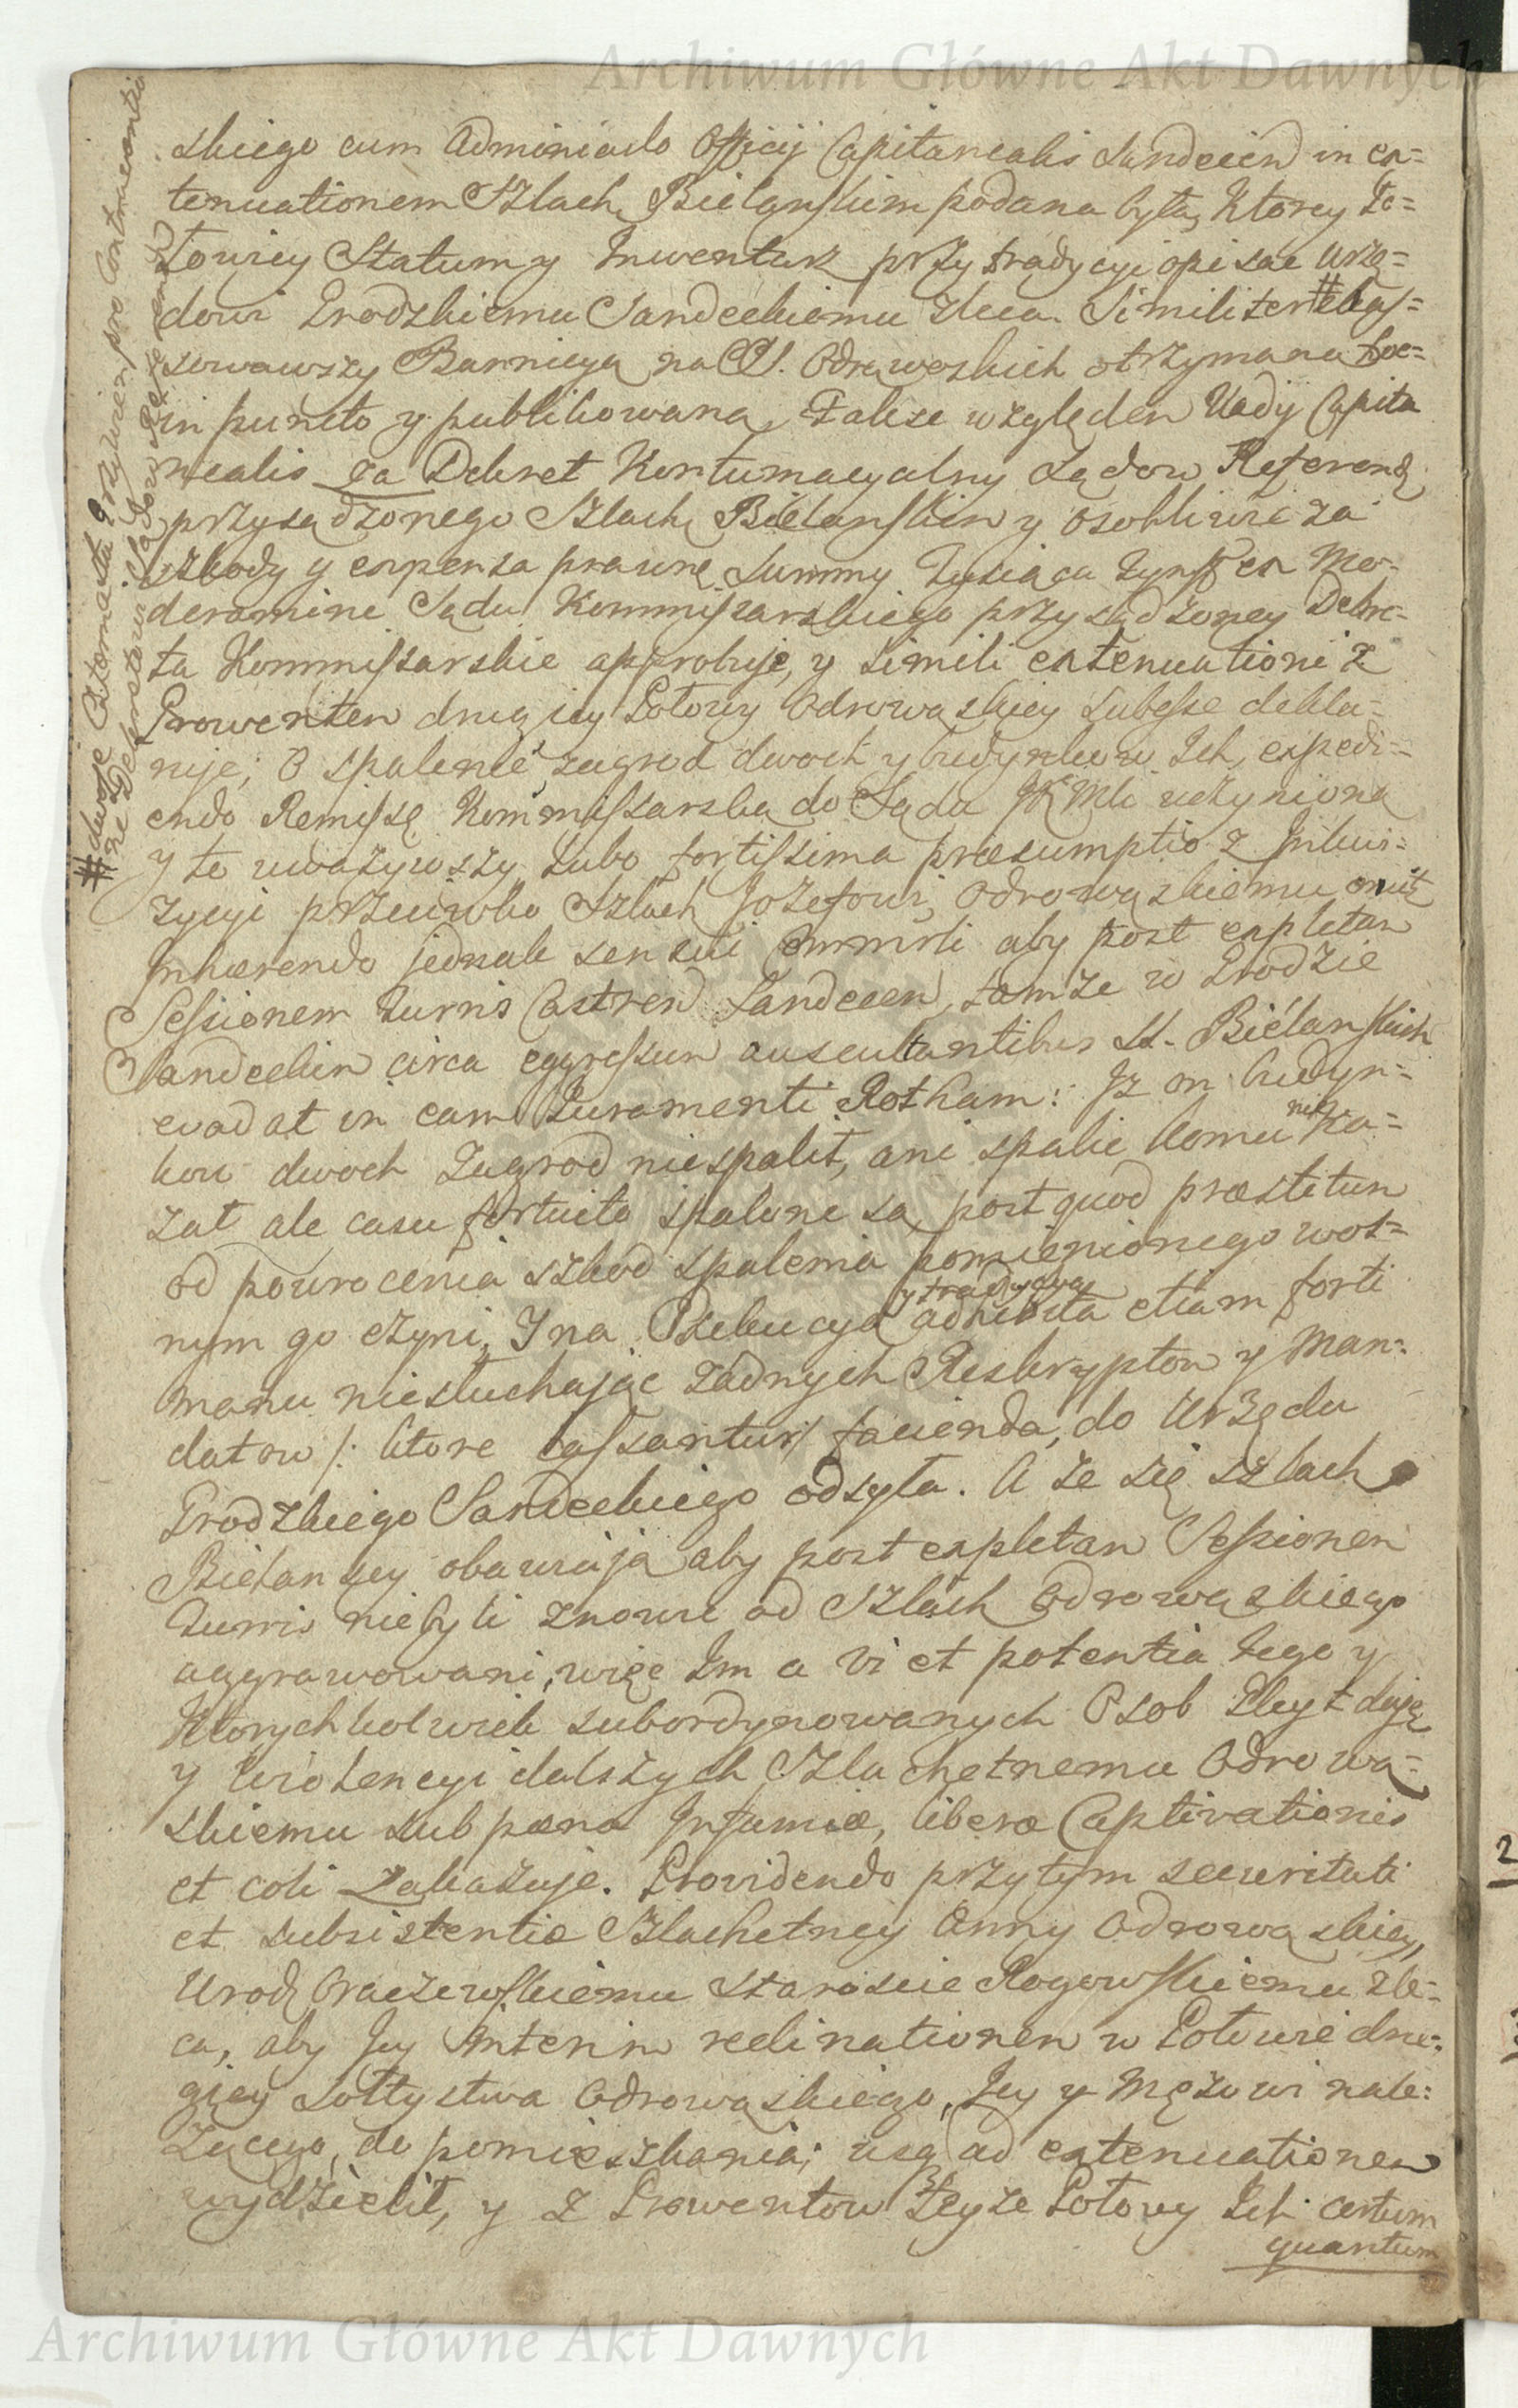 Archiwum Główne Akt Dawnych
skiego cum Adminiculo Officij Capitanealis Sandecen in ex=
tenuationem Szlach. Bielanskim podana była, Ktorey Po=
łowiey Statum y Inwentarz przy tradycyi opisać Urzę=
dowi Grodzkiemu Sandeckiemu zleca. Similiter # skas=
sowawszy Bannicyą na S. Odrowązkich otrzymaną hoc=
in puncto y publikowaną, Także względem Vadij Capita
nealis za Dekret Kontumacyalny Sądow Referend.
przysądzonego Szlach. Bielanskim y osobliwie za
szkody y expensa prawne Summy Tysiąca Tynf. ex Mo=
deramine Sądu Kommissarskiego przysądzoney Dekre=
ta Kommissarskie approbuje, y simili extenuationi z
Prowentem drugiey Połowy Odrowąskiey subesse dekla=
ruje; O spalenie zagrod dwoch y budynkow Ich, expedi=
endo Remissę Kommissarską do Sądu JKMci uczynioną
y to uważywszy lubo fortissima præsumptio z Inkwi=
zycyi przeciwko Szlach Jozefowi Odrowąskiemu
Inhærendo jednak sensui aby post expletam
Sessionem Turris Castren Sandecen, tamże w Grodzie
Sandeckim circa egressum auscultantibus S. Bielanskich
evadat in eam Juramenti Rotham: Iz on budyn=
kow dwoch Zagrod nie spalił, ani spalić komu nie ka=
zał ale casu fortuito spalone są, post quod præstitum
od powrocenia szkod spalenia pomienionego wol=
nym go czyni, Y na Exekucyą y tradycyą adhibita etiam forti
manu niesłuchając żadnych Reskryptow y Man=
datow /: ktore cassantur :/ facienda, do Urzędu
Grodzkiego Sandeckiego odsyła. A że się szlach
Bielanscy obawiają aby post expletam Sessionem
Turris nie byli znowu od Szlach Odrowąskiego
aggrawowani, więc Im a vi et potentia tego y
Ktorychkolwiek subordynowanych Osob Gleyt daje
y Wiolencyi dalszych Szlachetnemu Odrową=
skiemu sub pæna Infamiæ, liberæ Captivationis
et coli zakazuje. Providendo przytym securitati
et subsistentiæ Szlachetney Anny Odrowąskiey,
Urodz. Staroście Rogowskiemu zle=
ca, aby Jey Interim reclinationem w Połowie dru=
giey Sołtystwa Odrowąskiego, Jey y Mężowi nale=
żącego, do pomieszkania; usq ad extenuationem
wydzielił, y z Prowentow Teyże Połowy Ich certum
quantum
# dwoje Attentata Przywiey pro Contravention
ne Dekretowi Sądow Referend.
Archiwum Główne Akt Dawnych
2